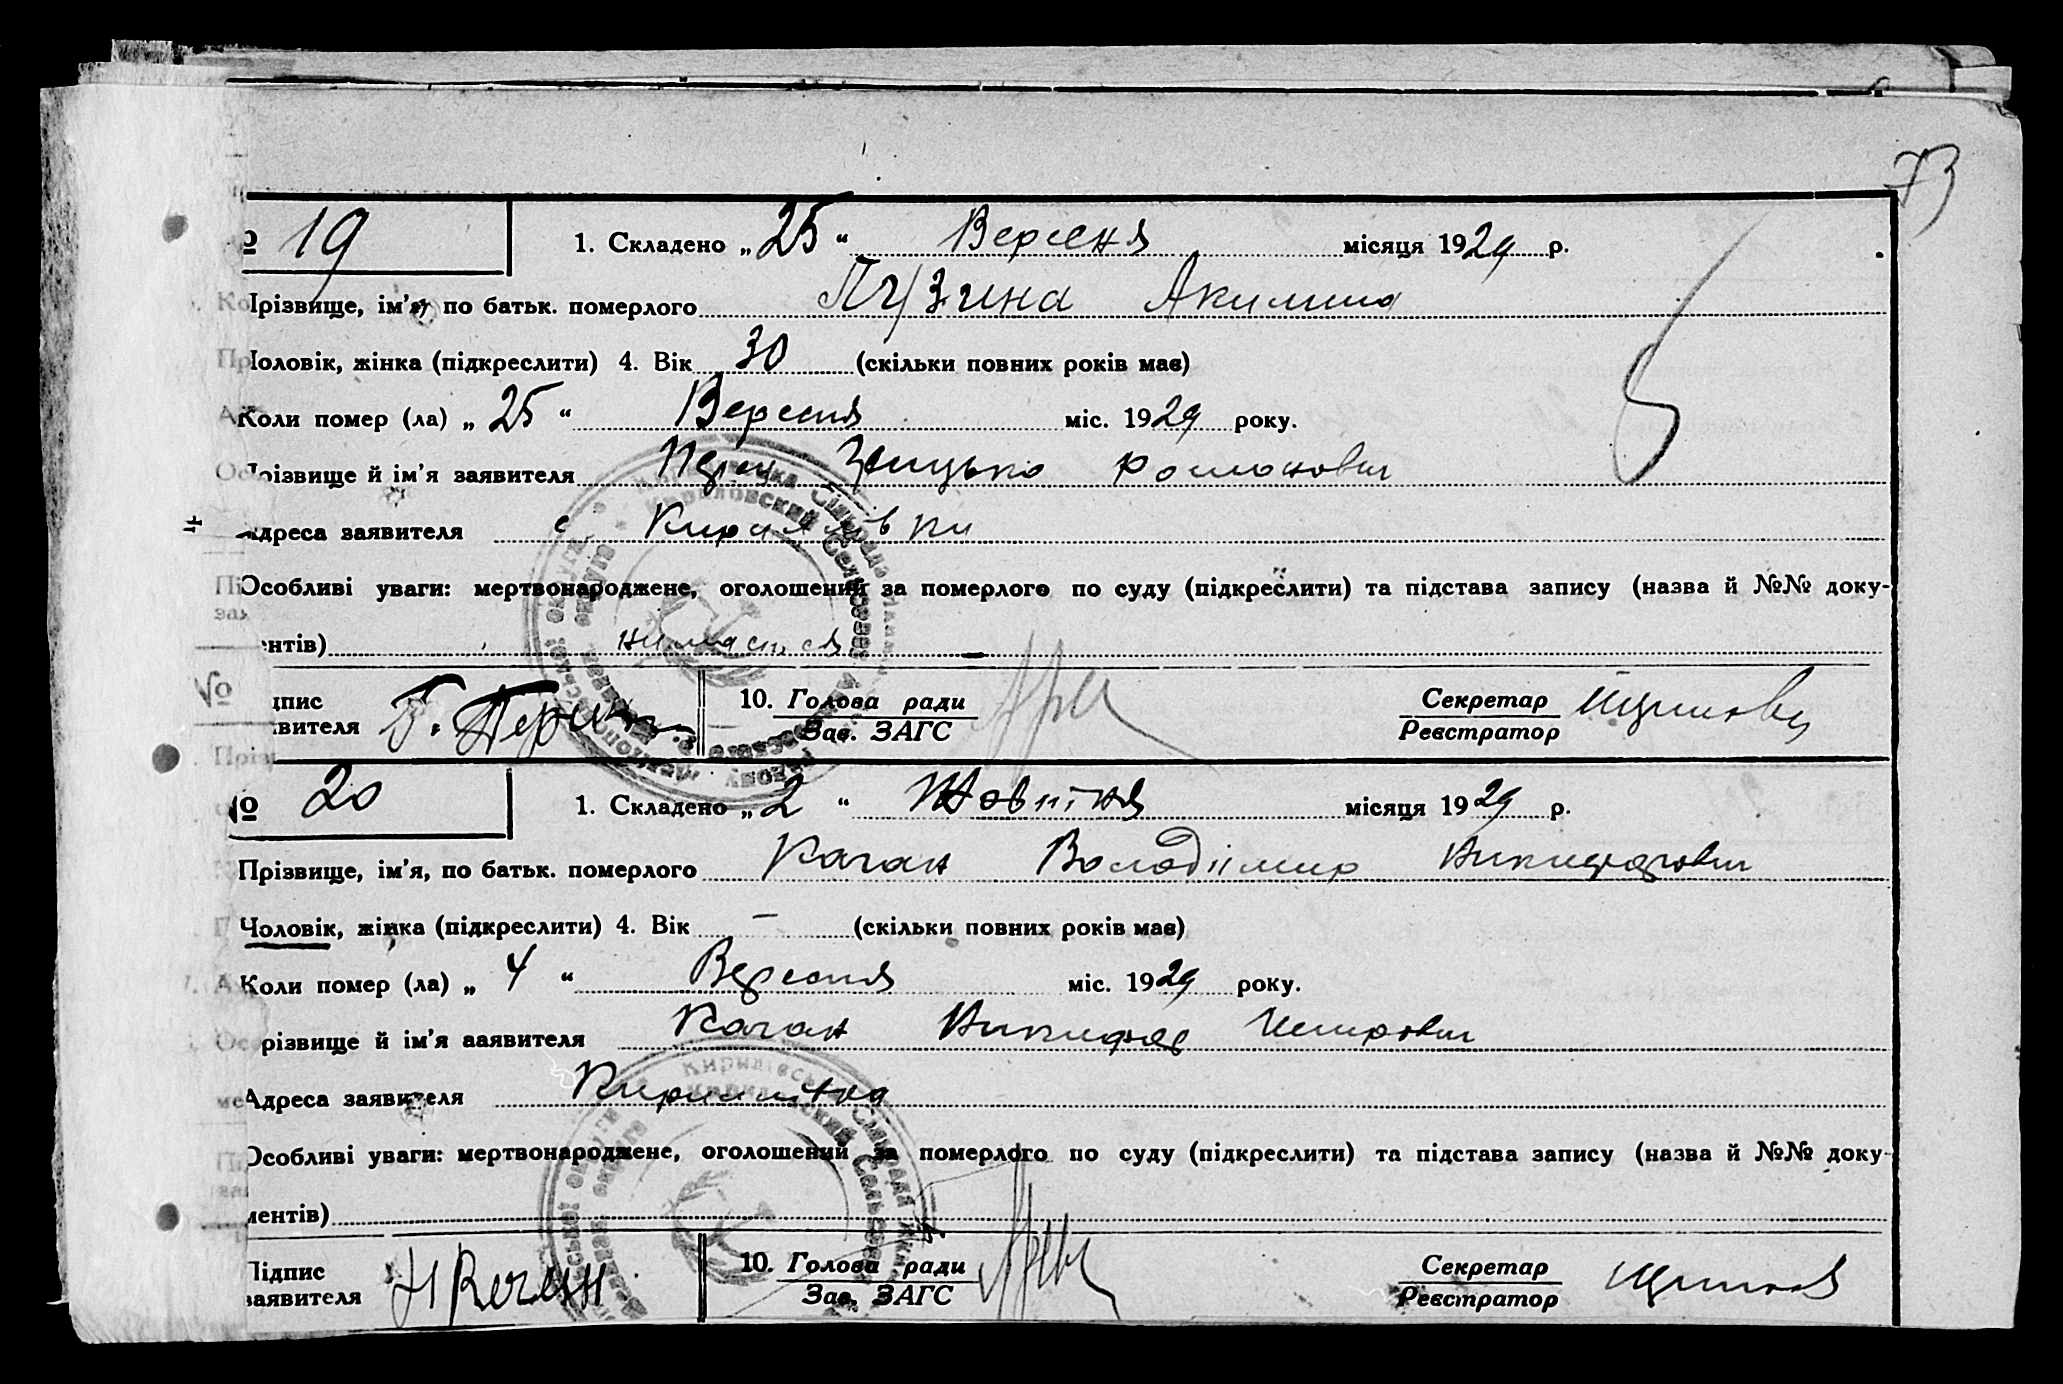 73
№ 19
1. Складено „25“ Вересня місяця 1929 р.
Прізвище, ім'я, по батьк. померлого Пузина Акилина
Чоловік, жінка (підкреслити) 4. Вік 30 (скільки повних років має)
Коли помер (ла) „25“ Вересня міс. 1929 року.
Прізвище й ім'я заявителя Грицько Романович
Адреса заявителя с Кирилівки
Особливі уваги: мертвонароджене, оголошений за померлого по суду (підкреслити) та підстава запису (назва й №№ доку-
ментів)
Підпис
заявителя
10. Голова ради
Зав. ЗАГС
Секретар
Реєстратор
№ 20
1. Складено „2“ Жовтня місяця 1929 р.
Прізвище, ім'я, по батьк. померлого Качан Володіимир Никифорович
Чоловік, жінка (підкреслити) 4. Вік – (скільки повних років має)
Коли помер (ла) „4“ Вересня міс. 1929 року.
Прізвище й ім'я заявителя Качан Никифор
Адреса заявителя Кирилівка
Особливі уваги: мертвонароджене, оголошений за померлого по суду (підкреслити) та підстава запису (назва й №№ доку-
ментів)
Підпис
заявителя Н Качан
10. Голова ради
Зав. ЗАГС
Секретар
Реєстратор